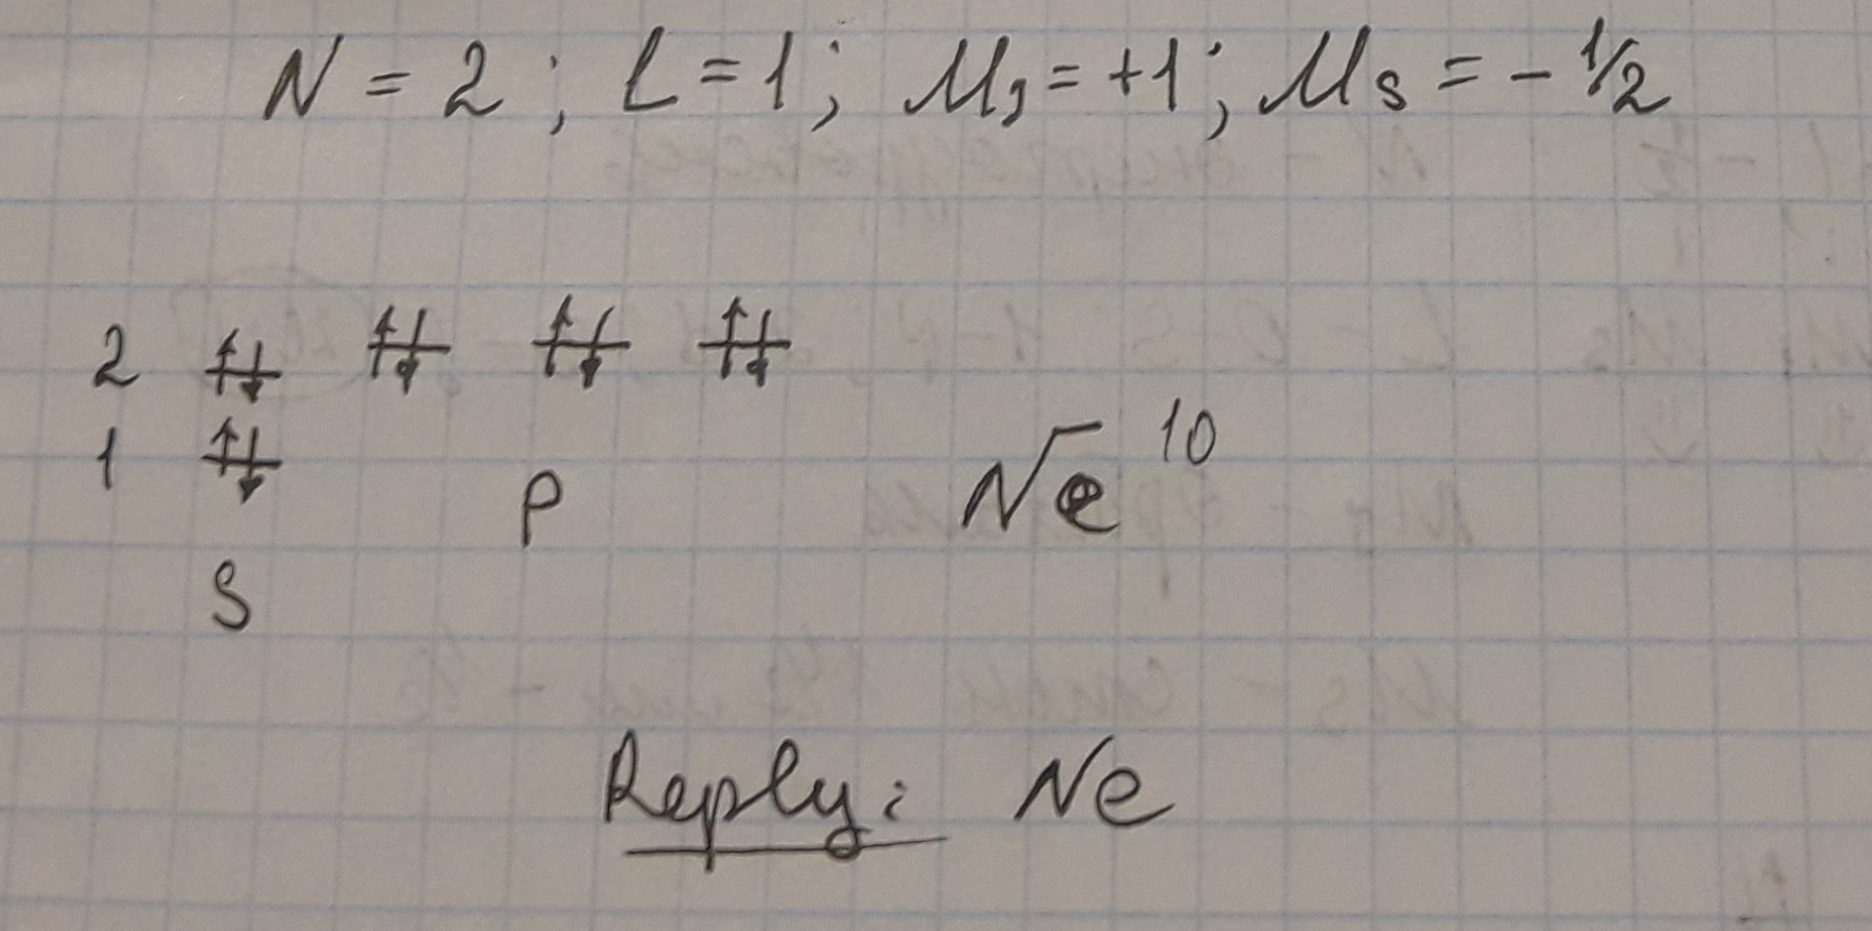 N = 2 ; L = 1 ; Ml = +1 ; Ms = - 1/2
2 ↑↓ ↑↓ ↑↓ ↑↓
1 ↑↓
P
Ne 10
S
Reply: Ne